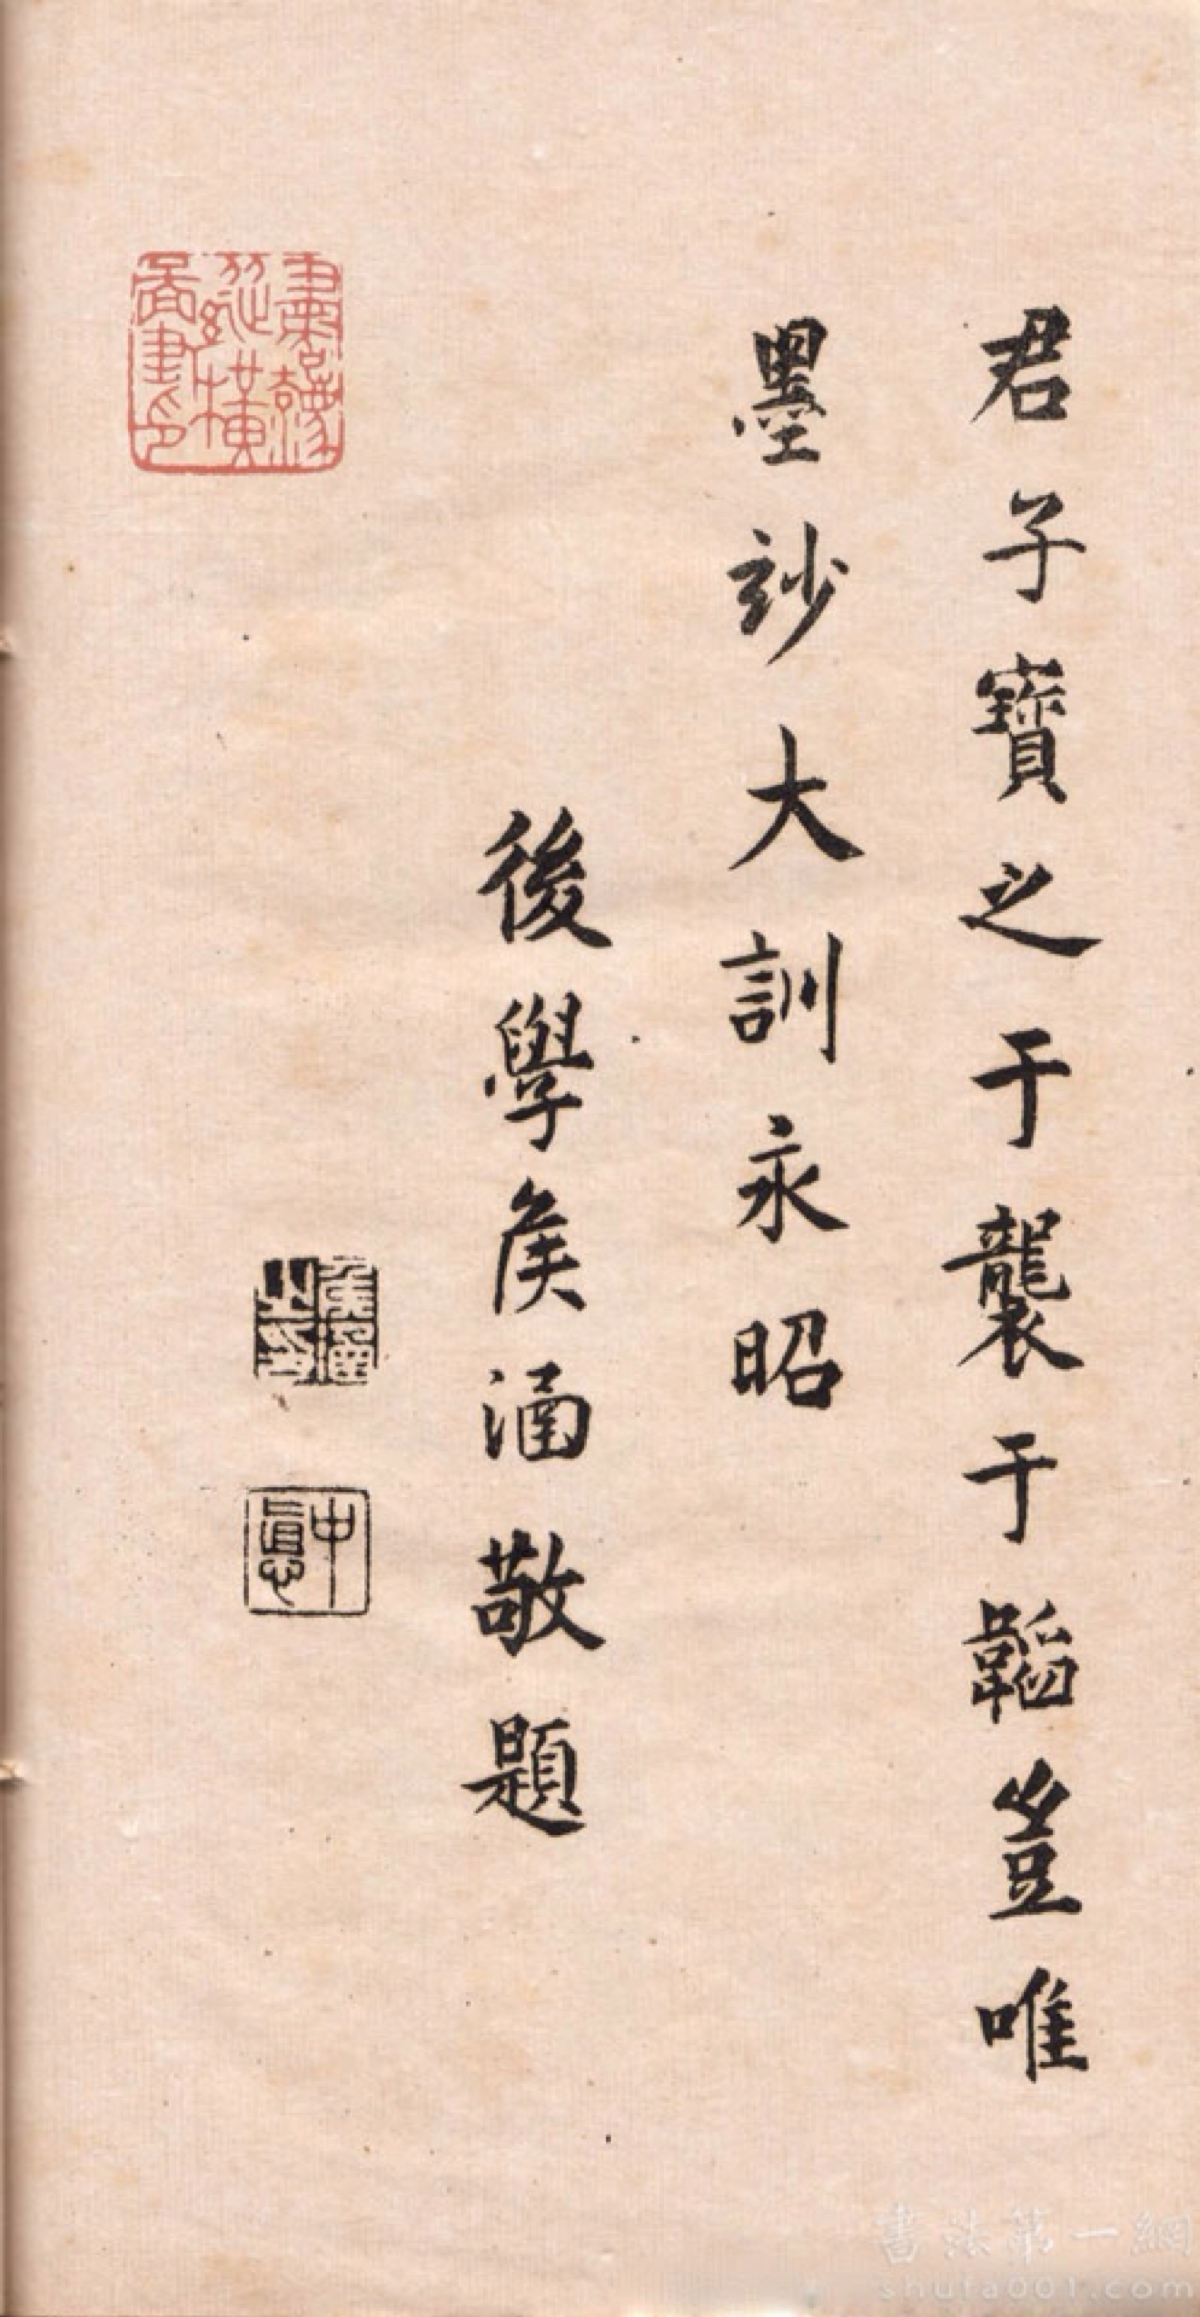 君子寶之于襲于韜豈唯
墨玅大訓永昭
後學矦涵敬題
書法第一網
shufa001.com